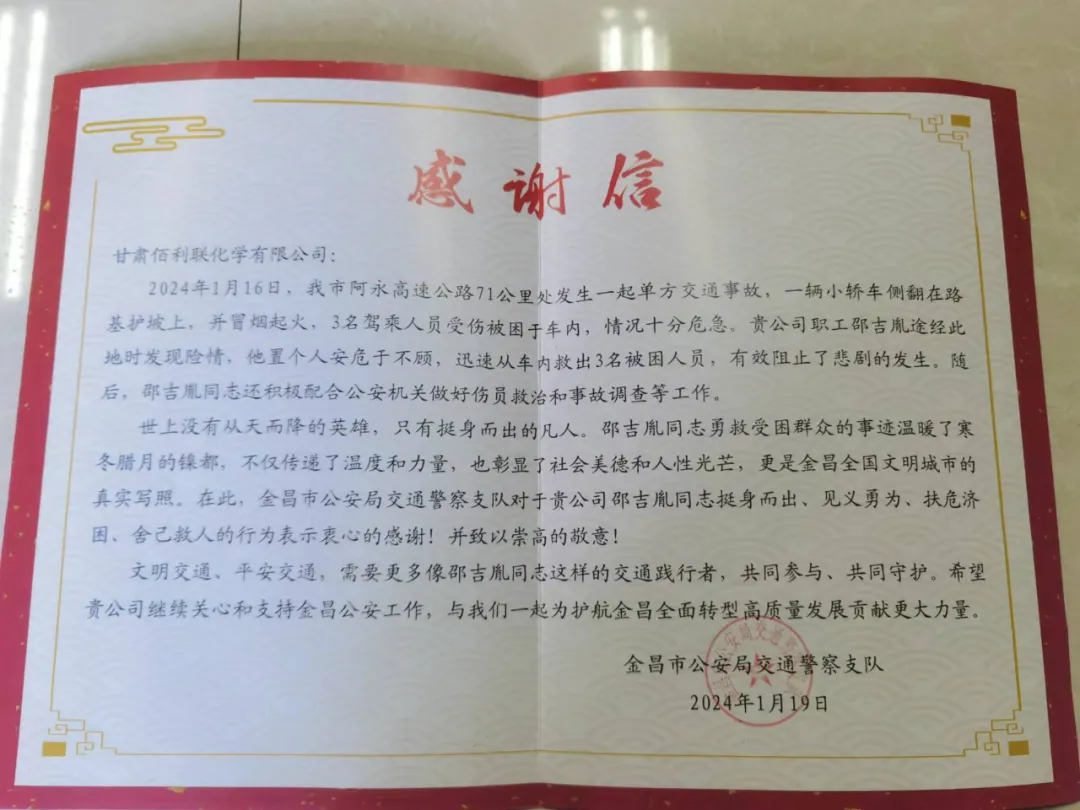 感谢信
甘肃佰利联化学有限公司：
2024年1月16日，我市阿永高速公路71公里处发生一起单方交通事故，一辆小轿车侧翻在路
基护坡上，并冒烟起火，3名驾乘人员受伤被困于车内，情况十分危急。贵公司职工邵吉胤途经此
地时发现险情，他置个人安危于不顾，迅速从车内救出3名被困人员，有效阻止了悲剧的发生。随
后，邵吉胤同志还积极配合公安机关做好伤员救治和事故调查等工作。
世上没有从天而降的英雄，只有挺身而出的凡人。邵吉胤同志勇救受困群众的事迹温暖了寒
冬腊月的镍都，不仅传递了温度和力量，也彰显了社会美德和人性光芒，更是金昌全国文明城市的
真实写照。在此，金昌市公安局交通警察支队对于贵公司邵吉胤同志挺身而出、见义勇为、扶危济
困、舍己救人的行为表示衷心的感谢！并致以崇高的敬意！
文明交通、平安交通，需要更多像邵吉胤同志这样的交通践行者，共同参与、共同守护。希望
贵公司继续关心和支持金昌公安工作，与我们一起为护航金昌全面转型高质量发展贡献更大力量。
金昌市公安局交通警察支队
2024年1月19日